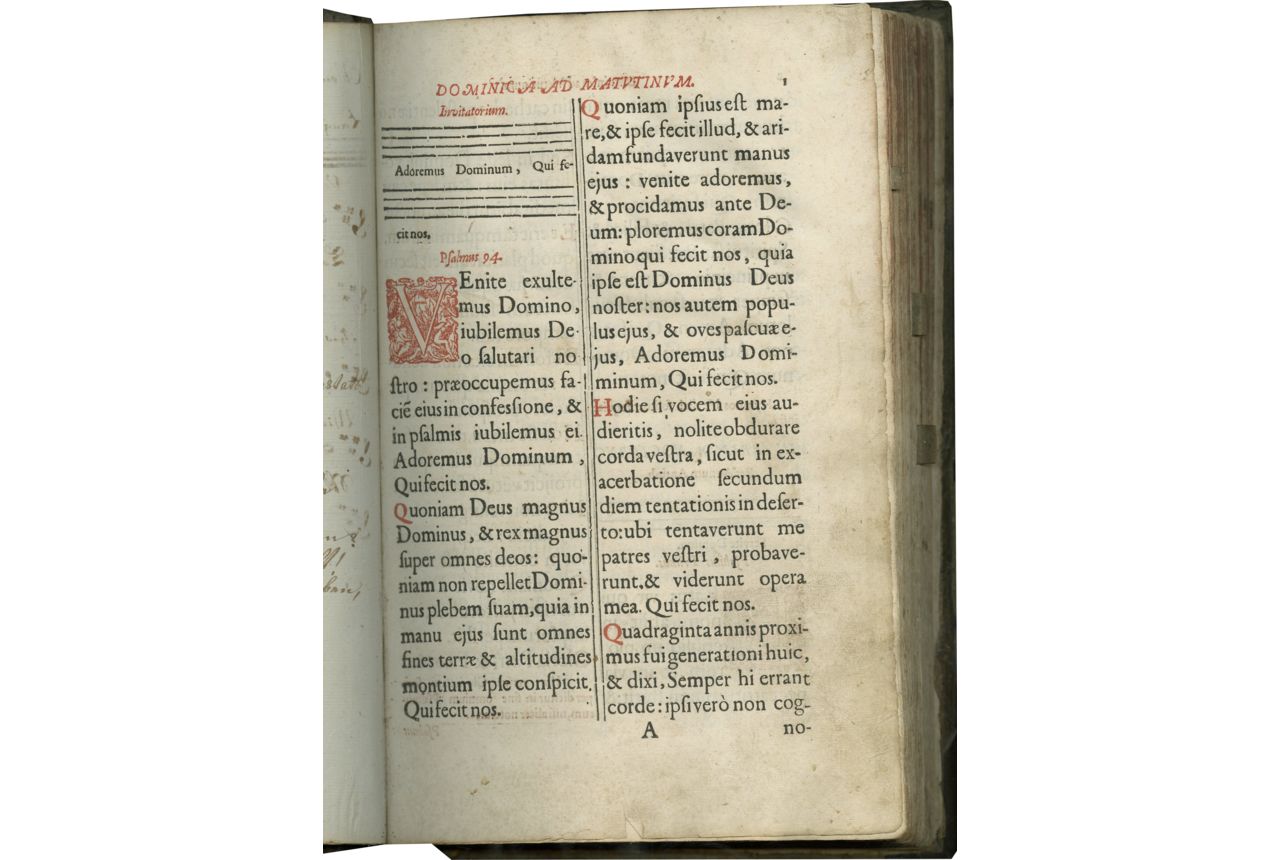 DOMINICA AD MATVTINVM.
1
Invitatorium.
Adoremus Dominum, Qui fe-
cit nos,
Psalmus 94.
VEnite exulte-
mus Domino,
iubilemus De-
o ſalutari no
ſtro : præoccupemus fa-
ciē eius in confeſſione, &
in pſalmis iubilemus ei.
Adoremus Dominum,
Qui fecit nos.
Quoniam Deus magnus
Dominus, & rex magnus
ſuper omnes deos: quo-
niam non repellet Domi-
nus plebem ſuam, quia in
manu ejus ſunt omnes
fines terræ & altitudines
montium ipſe conſpicit.
Qui fecit nos.
Quoniam ipſius eſt ma-
re, & ipſe fecit illud, & ari-
dam fundaverunt manus
ejus : venite adoremus,
& procidamus ante De-
um: ploremus coram Do-
mino qui fecit nos, quia
ipſe eſt Dominus Deus
noſter: nos autem popu-
lus ejus, & oves paſcuæ e-
jus, Adoremus Domi-
minum, Qui fecit nos.
Hodie ſi vocem eius au-
dieritis, nolite obdurare
corda veſtra, ſicut in ex-
acerbatione ſecundum
diem tentationis in deſer-
to: ubi tentaverunt me
patres veſtri, probave-
runt. & viderunt opera
mea. Qui fecit nos.
Quadraginta annis proxi-
mus fui generationi huic,
& dixi, Semper hi errant
corde: ipſi verò non cog-
A
no-